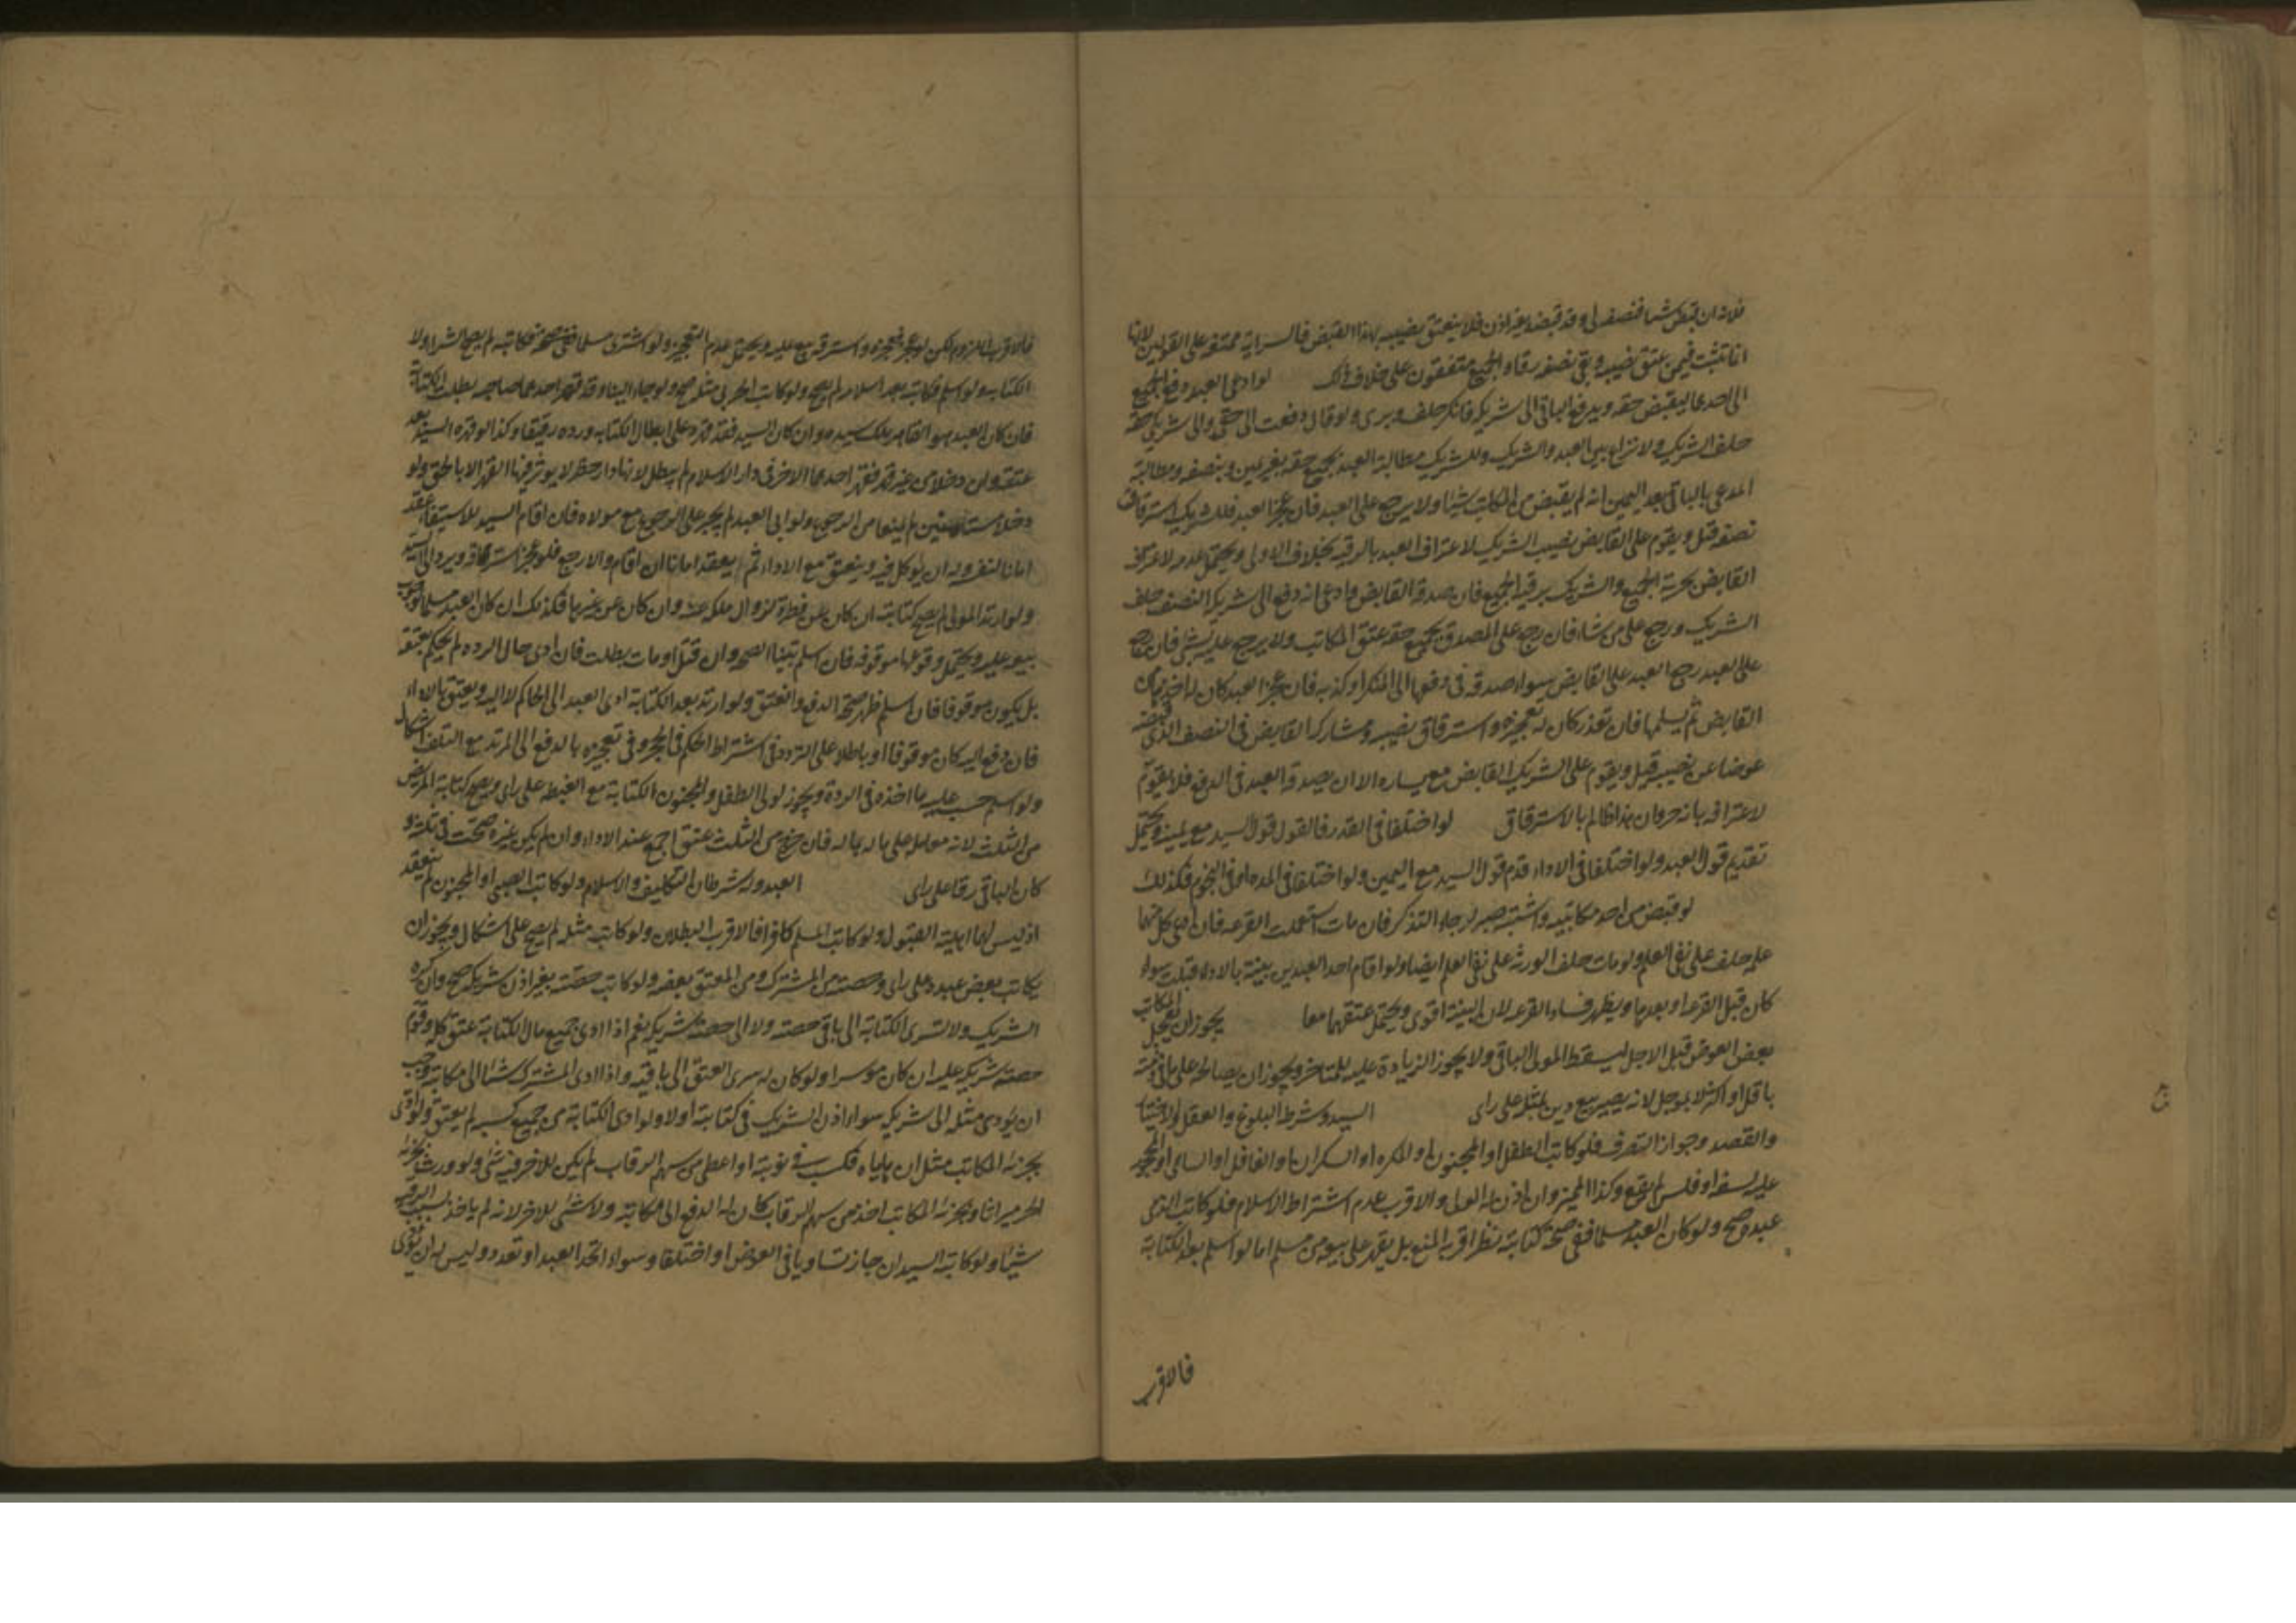 فلانه ان قبض شيئا فنصفه لي وقد قبضه بغير اذن فلا ينعتق نصيبه بهذا القبض فالسراية ممتنعة على القولين لانها
انما تثبت فيمن عتق نصيبه وبقي نصفه رقا والجميع متفقون على خلاف ذلك لو ادعى العبد دفع الجميع
الى احدهما ليقبض حقه ويدفع الباقي الى شريكه فانكر حلف وبرئ ولو قال دفعت الى حقي والى شريكي حقه
حلف الشريك ولا نزاع بين العبد والشريك وللشريك مطالبة العبد بجميع حقه بغير يمين وبنصفه ومطالبة
المدعى بالباقي بعد اليمين انه لم يقبض من المكاتب شيئا ولا يرجع على العبد فان عجز العبد فللشريك استرقاق
نصفه قيل ويقوم على القابض نصيب الشريك لاعتراف العبد بالرقية بخلاف الاولى ويحتمل عدمه لاعتراف
القابض بحرية الجميع والشريك برقية الجميع فان صدقه القابض وادعى انه دفع الى شريكه النصف حلف
الشريك ورجع على من شاء فان رجع على المصدق بجميع حقه عتق المكاتب ولا يرجع عليه بشئ فان رجع
على العبد رجع العبد على القابض سواء صدقه في دفعها الى المنكر او كذبه فان عجز العبد كان له اخذها من
القابض ثم يسلمها فان تعذر كان له تعجيزه واسترقاق نصيبه ومشاركة القابض في النصف الذي قبضه
عوضا عن نصيبه قيل ويقوم على الشريك القابض مع يساره الا ان يصدقه العبد في الدفع فلا يقوم
لاعترافه بانه حر وان هذا ظالم بالاسترقاق لو اختلفا في القدر فالقول قول السيد مع يمينه ويحتمل
تقديم قول العبد ولو اختلفا في الاداء قدم قول السيد مع اليمين ولو اختلفا في المدة او في النجوم فكذلك
لو قبض من احد مكاتبيه واشتبه صبر لرجاء التذكر فان مات استعملت القرعة فان ادعى كل منهما
علمه حلف على نفي العلم ولو مات حلف الورثة على نفي العلم ايضا ولو اقام احد العبدين بينة بالاداء قبلت سواء
كان قبل القرعة او بعدها ويظهر فساد القرعة لان البينة اقوى ويحتمل عتقهما معا يجوز ان يعجل المكاتب
بعض العوض قبل الاجل ليسقط المولى الباقي ولا يجوز الزيادة عليه للمتاخر ويجوز ان يصالحه على ما في ذمته
باقل او اكثر لا بمؤجل لانه يصير بيع دين بمثله على راي السيد وشرطه البلوغ والعقل والاختيار
والقصد وجواز التصرف فلو كاتب الطفل او المجنون او المكره او السكران او الغافل او الساهي او المحجور
عليه لسفه او فلس لم يقع وكذا المميز وان اذن له الولي والاقرب عدم اشتراط الاسلام فلو كاتب الذمي
عبده صح ولو كان العبد مسلما ففي صحة كتابته نظر اقربه المنع بل يقهر على بيعه من مسلم اما لو اسلم بعد الكتابة
فالاقرب
فالاقرب اللزوم لكن لو عجز فعجزه واسترقه بيع عليه ويحتمل عدم التعجيز ولو اشترى مسلما ففي صحته فكاتبه لم يصح الشراء ولا
الكتابة ولو اسلم فكاتبه بعد اسلامه لم يصح ولو كاتب الحربي مثله صح ولو جاءا الينا وقد قهر احدهما صاحبه بطلت الكتابة
فان كان العبد هو القاهر ملك سيده وان كان السيد فقد قهره على ابطال الكتابة ورده رقيقا وكذا لو قهره السيد بعد
عتقه ولو دخلا من غير قهر فقهر احدهما الاخر في دار الاسلام لم يبطل لانها دار حظر لا يوثر فيها القهر الا بالحق ولو
دخلا مستامنين لم يمنعا من الرجوع ولو ابى العبد لم يجبر على الرجوع مع مولاه فان اقام السيد للاستيفاء عقد
امانا لنفسه وله ان يوكل فيه وينعتق مع الاداء ثم يعقد امانا ان اقام والا رجع فلو عجز استرقاقه ويرد الى السيد
ولو ارتد المولى لم يصح كتابته ان كان عن فطرة لزوال ملكه عنه وان كان عن غيرها فكذلك ان كان العبد مسلما لوجوب
بيعه عليه ويحتمل وقوعها موقوفة فان اسلم تبينا الصحة وان قتل او مات بطلت فان ادى حال الردة لم يحكم بعتقه
بل يكون موقوفا فان اسلم ظهر صحة الدفع والعتق ولو ارتد بعد الكتابة ادى العبد الى الحاكم لا اليه ويعتق بالاداء
فان دفع اليه كان موقوفا او باطلا على التردد في اشتراط الحكم في الحجر وفي تعجيزه بالدفع الى المرتد مع التلف اشكال
ولو اسلم حسب عليه ما اخذه في الردة ويجوز لولي الطفل والمجنون الكتابة مع الغبطة على راي ويصح كتابة المريض
من الثلث لانه معاملة على ماله بماله فان خرج من الثلث عتق اجمع عند الاداء وان لم يكن غيره صحت في ثلثه و
كان الباقي رقا على راي العبد وله شرطان التكليف والاسلام ولو كاتب الصبي او المجنون لم ينعقد
اذ ليس لهما اهلية القبول ولو كاتب المسلم كافرا فالاقرب البطلان ولو كاتب مثله لم يصح على اشكال ويجوز ان
يكاتب بعض عبده على راي وحصته من المشترك ومن المعتق بعضه ولو كاتب حصته بغير اذن شريكه صح وان كره
الشريك ولا تسري الكتابة الى باقي حصته ولا الى حصة شريكه نعم اذا ادى جميع مال الكتابة عتق كله وقوم
حصة شريكه عليه ان كان موسرا ولو كان له سرى العتق الى باقيه واذا ادى المشترك شيئا الى مكاتبه وجب
ان يؤدي مثله الى شريكه سواء اذن الشريك في كتابته او لا ولو ادى الكتابة من جميع كسبه لم يعتق ولو ادى
بجزئه المكاتب مثل ان هاياه فكسب في نوبته او اعطي من سهم الرقاب لم يكن للاخر فيه شئ ولو ورث بجزئه
الحر ميراثا وبجزئه المكاتب اخذ من سهم الرقاب كان له الدفع الى مكاتبه ولا شئ للاخر لانه لم ياخذ بسبب الرق
شيئا ولو كاتبه السيدان جاز تساويا في العوض او اختلفا وسواء اتحد العبد او تعدد وليس له ان يؤدي